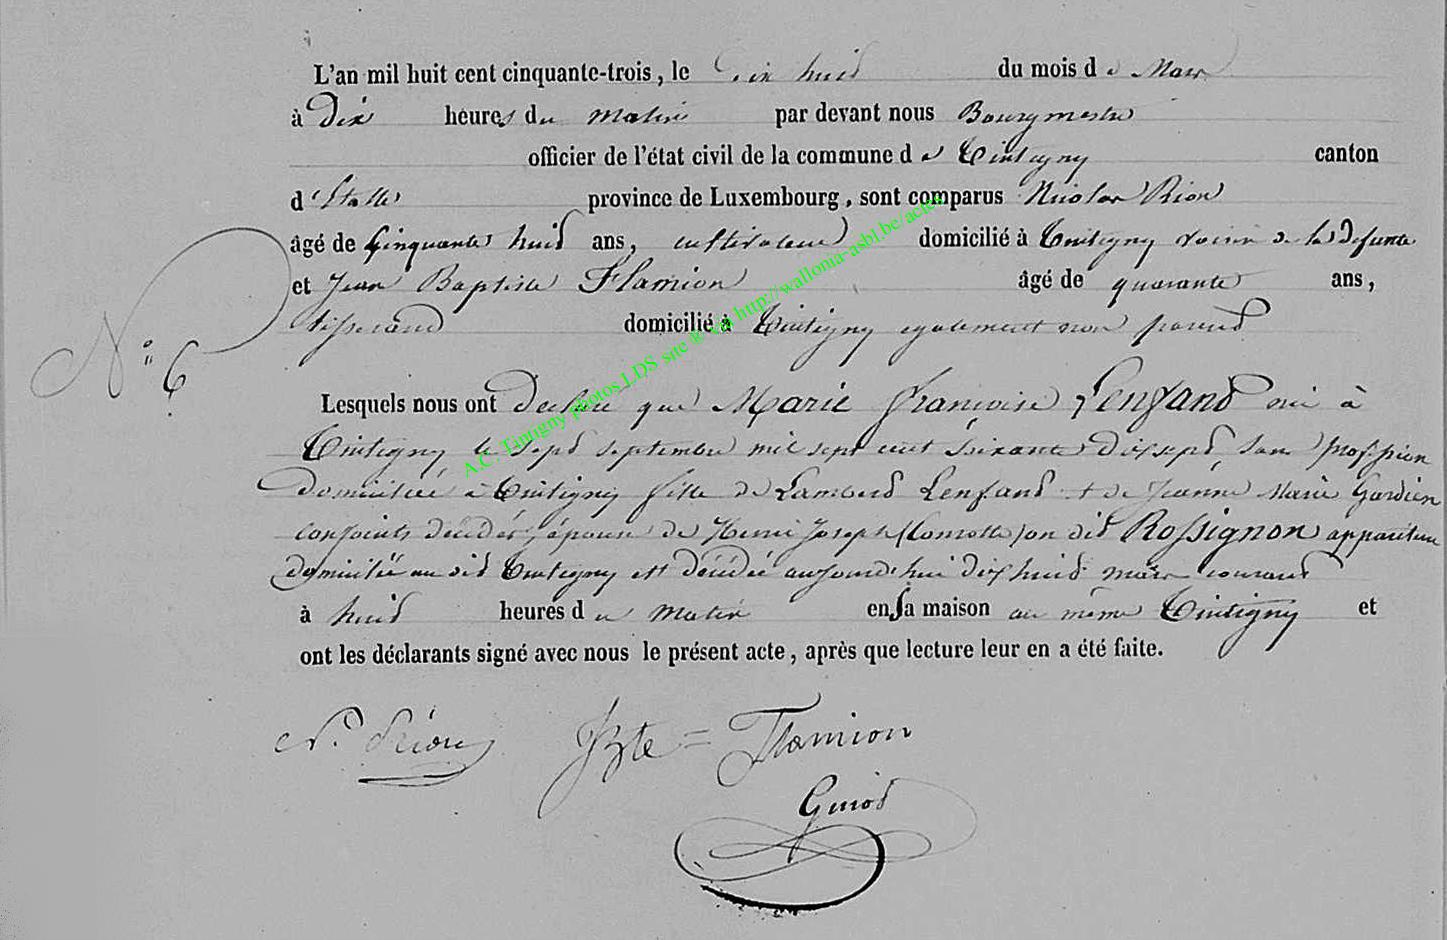 L'an mil huit cent cinquante-trois, le dix huit du mois de Mars
à Dix heures du matin par devant nous Bourgmestre
officier de l'état civil de la commune de Tintigny canton
d'Etalle province de Luxembourg, sont comparus Nicolas Rion
âgé de Cinquante huit ans, cultivateur domicilié à Tintigny voisin de la défunte
et Jean Baptiste Flamion âgé de quarante ans,
tisserand domicilié à Tintigny egalement non parent
N° 6
Lesquels nous ont déclaré que Marie Françoise Lenfant née à
Tintigny le sept septembre mil sept cent soixante dix sept sans profession
domiciliée à Tintigny fille de Lambert Lenfant et de Jeanne Marie Gardien
conjoints décédés épouse de Henri Joseph (Comotte) on dit Rossignon appariteur
domiciliée au dit Tintigny est décédée aujourd'hui dix huit mars courant
à huit heures du matin en sa maison au même Tintigny et
ont les déclarants signé avec nous le présent acte, après que lecture leur en a été faite.
N. Rion JBte = Flamion
Guiot
A.C. Tintigny photos LDS site via http://wallonia-asbl.be/actes